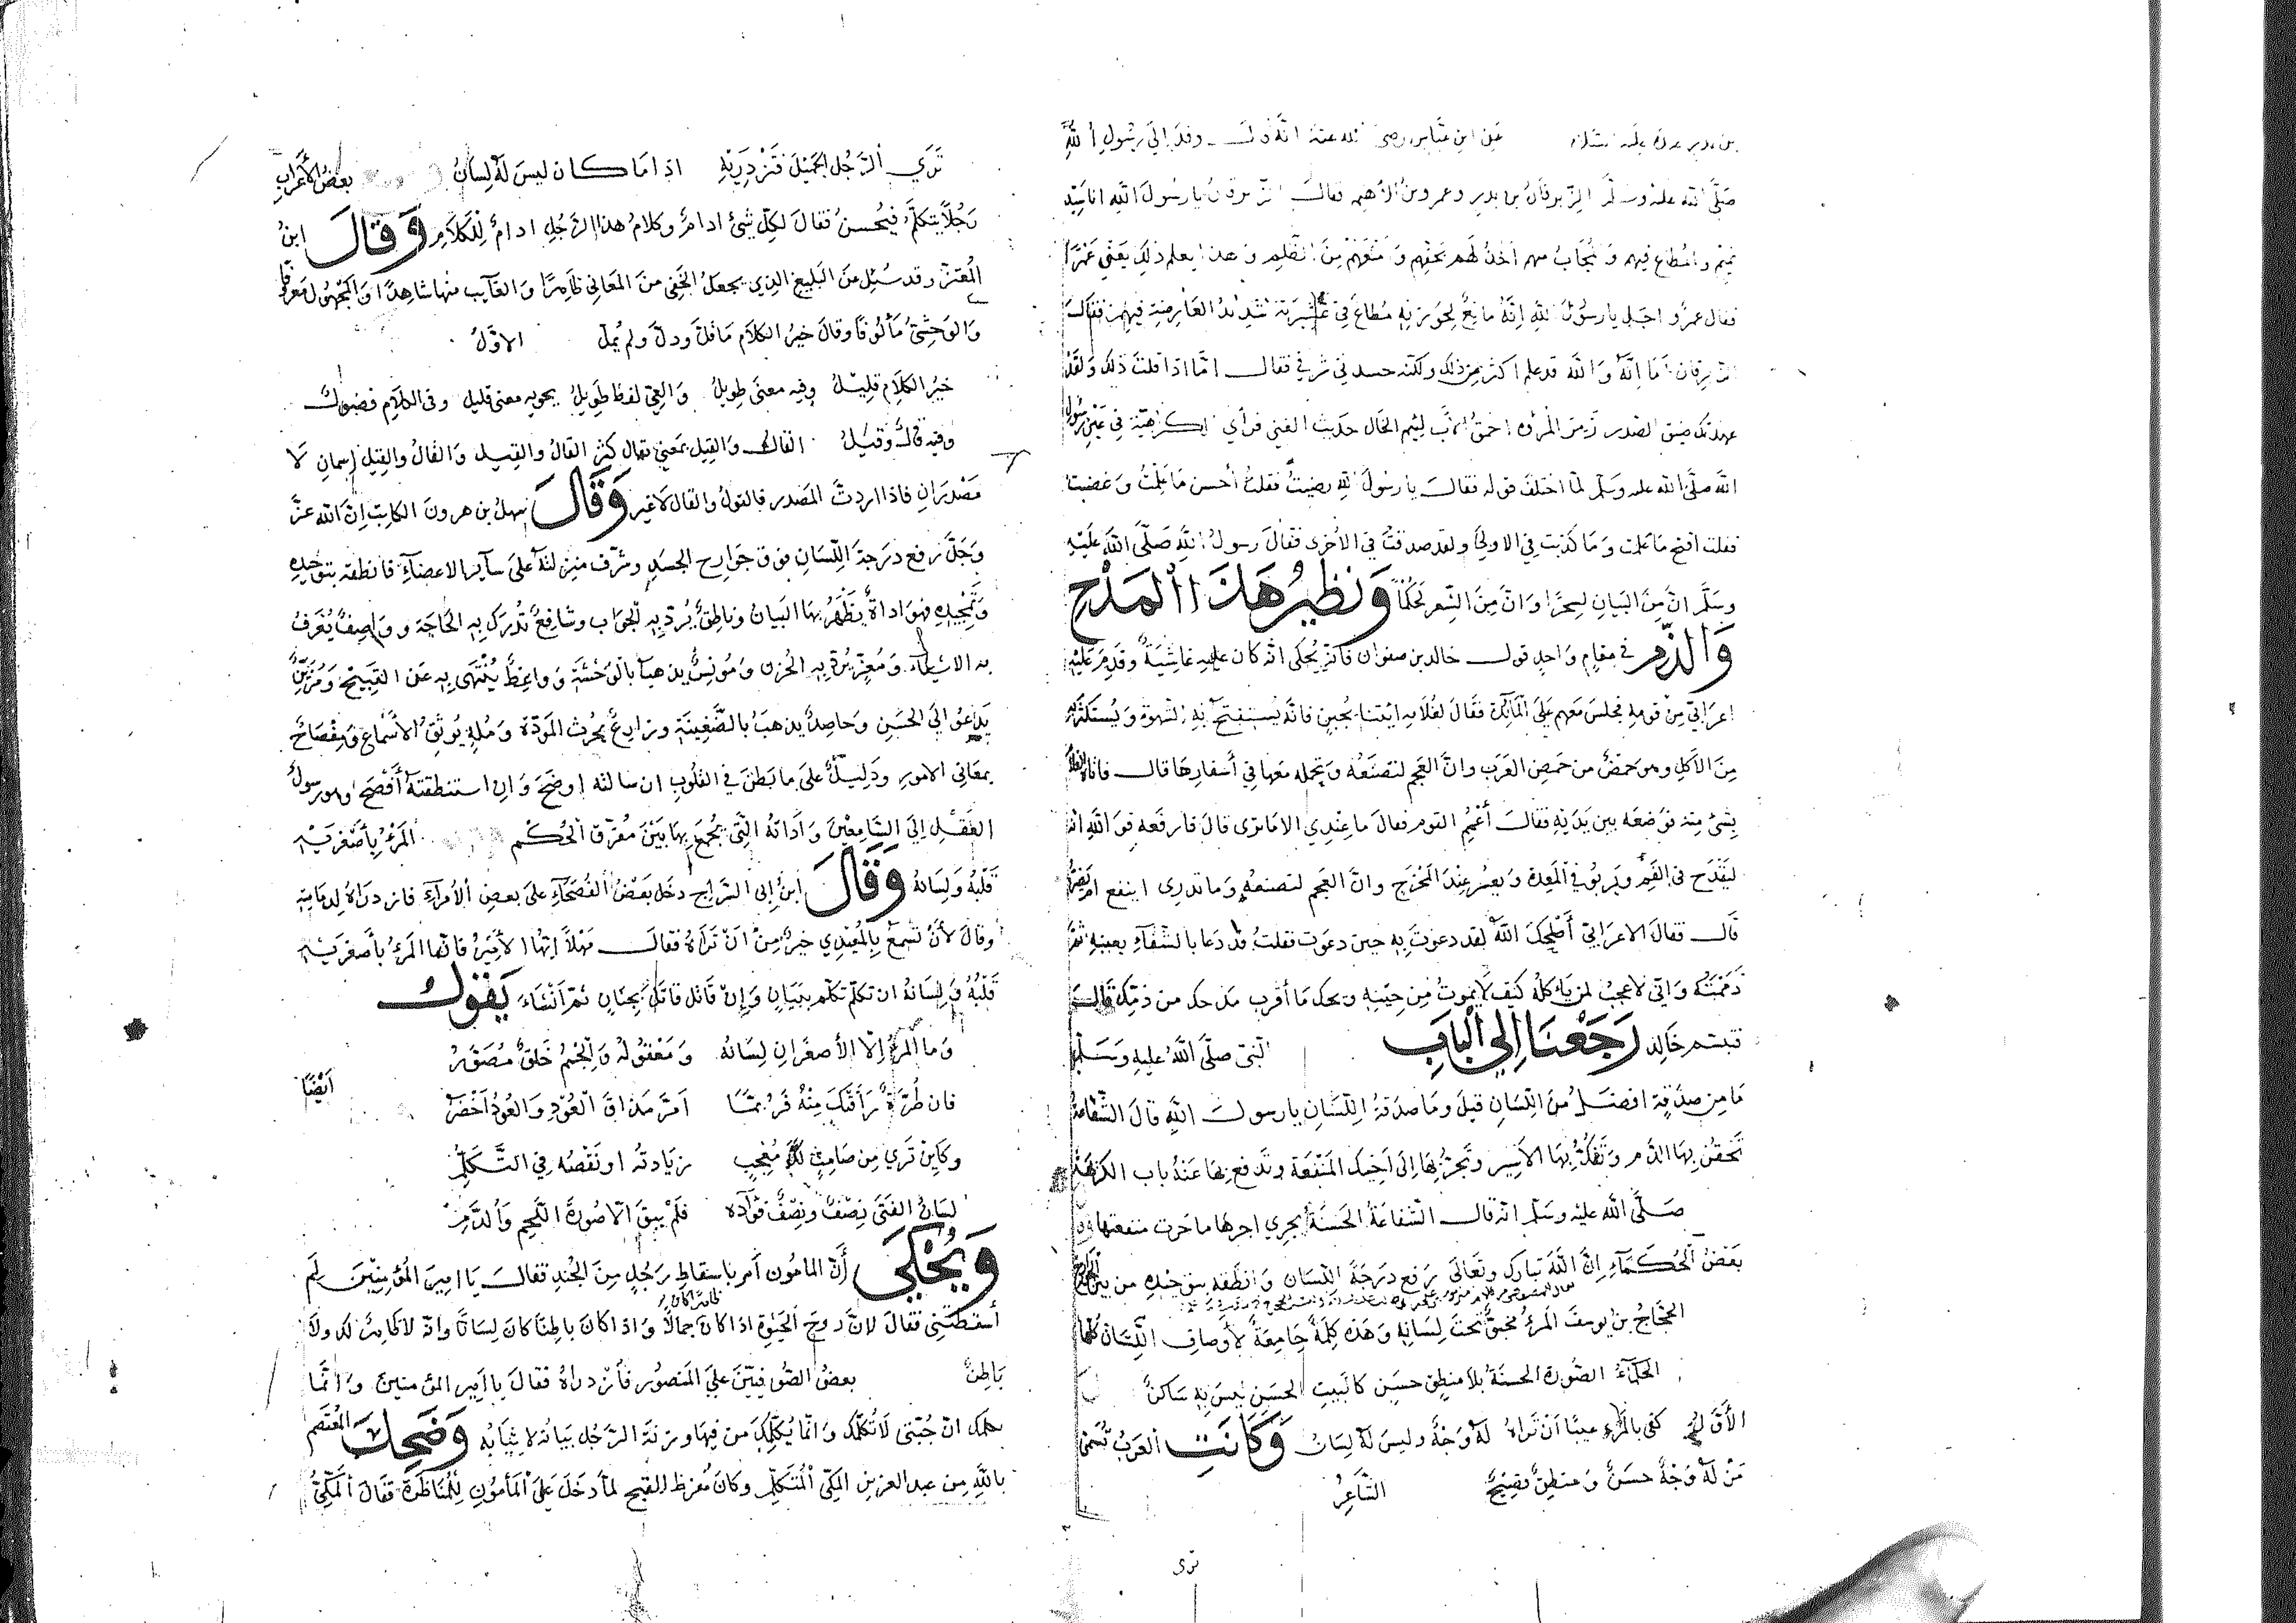 عن ابن عباس رضي الله عنه انه وفد الي رسول الله
صلى الله عليه وسلم الزبرقان بن بدر وعمرو بن الاهيم فقال الزبرقان يا رسول الله انا سيد
تميم والمطاع فيهم والمجاب منهم اخذ لهم بحقهم وامنعهم من الظلم وهذا يعلم ذلك يعني عمرًا
فقال عمرو اجل يا رسول الله انه مانع لحوزته مطاع في عشيرته شديد العارضة فيهم فقال
الزبرقان اما انه والله قد علم اكثر من ذلك ولكنه حسدني شرفي فقال امّا اذا قلت ذلك ولقد
عهدتك ضيق الصدر زمر المروة احمق الاب لئيم الخال حديث الغني فرأي الكراهية في عين رسول
الله صلى الله عليه وسلم لما اختلف قوله فقال يا رسول الله رضيت فقلت أحسن ما علمت وغضبت
فقلت اقبح ما علمت وما كذبت في الاولي ولقد صدقت في الاخرى فقال رسول الله صلى الله عليه
وسلم ان من البيان لسحرًا وان من الشعر لحكمًا وَنظيرُ هَذَا الْمَدْحِ
وَالذّم في مقام واحد قول خالد بن صفوان فانه يُحكى انه كان عليه غاشية وقدم عليه
اعرابي من قومه فجلس معهم على المائدة فقال لغلامه ايتنا بجبن فانه يستفتح به الشهوة ويستكثر به
من الأكل وهو حمض من حمض العرب وان العجم لتصنعه وتحمله معها في أسفارها قال فاتاه الغلام
بشئ منه فوضعه بين يديه فقال أعجم القوم فقال ما عندي الا ما ترى قال فارفعه فو الله انه
ليقدح في الفم ويربو في المعدة ويعسر عند المخرج وان العجم لتصنعه وما تدري اينفع ام يضر
قال فقال الاعرابي أصلحك الله لقد دعوت به حين دعوت فقلت قد دعا بالشفاء بعينه ثم
ذممته واني لاعجب لمن يأكله كيف لا يموت من حينه ويحك ما أقرب مدحك من ذمّك قال
فتبسم خالد رَجَعْنَا إلي الْبَابِ النبي صلّى الله عليه وسلم
ما من صدقة افضل من اللسان قيل وما صدقة اللسان يا رسول الله قال الشفاعة
تحقن بها الدم وتفك بها الأسير وتجر بها إلى اخيك المنفعة وتدفع بها عنه باب الكريهة
صلّى الله عليه وسلم انه قال الشفاعة الحسنة يجري اجرها ما جرت منفعتها
بعض الحكماء انّ الله تبارك وتعالى رفع درجة اللسان وانطقه بتوحيده من بين الجوارح
الحجاج بن يوسف المرء مخبو تحت لسانه وهذه كلمة جامعة لأوصاف اللسان كلها
الحكماء الصورة الحسنة بلا منطق حسن كالبيت الحسن ليس به ساكن
الأول كفى بالمرء عيبًا ان تراه له وجه وليس له لسان وَكَانَت العرب
من له وجه حسن ومنطق قبيح الشاعر
ترى
تَرَي الرّجُل الجميل فَتَزْدَرِيْهِ اذا ما كان ليس له لسان بعض الأعراب
رجلا يتكلم فيحسن فقال لكل شئ ادام وكلام هذا الرجل ادام للكلام وَقَالَ ابن
المعتز وقد سئل عن البليغ الذي يجعل الخفي من المعاني ظاهرًا والغايب منها شاهدًا والمجهول معروفا
والوحشيّ مألوفًا وقال خير الكلام ما قلّ ودلّ ولم يملّ الاوّل
خير الكلام قليل وفيه معنى طويل والعي لفظ طويل يحويه معنى قليل وفي الكلام فضول
وفيه قال وقيل القال والقيل بمعنى يقال كثر القال والقيل والقال والقيل اسمان لا
مصدران فاذا اردت المصدر فالقول والقال لا غير وَقَالَ سهل بن هرون الكاتب انّ الله عزّ
وجلّ رفع درجة اللسان فوق جوارح الجسد وشرّف منزلته على ساير الاعضاء فانطقه بتوحيده
وتمجيده فهو اداة يظهر بها البيان وناطق يُردّ به الجواب وشافع تُدرَك به الحاجة وواصف يُعرَف
به الاشياء ومعزّ يُردّ به الحزن ومونس يذهب بالوحشة وواعظ يُنتهى به عن القبيح ومزيّن
يدعو الي الحسن وحاصد يذهب بالضغينة وزارع يحرث المودّة ومُلهٍ يُونق الأسماع ومفصاح
بمعاني الامور ودليل على ما بطن في القلوب ان سالته اوضح وان استنطقته أفصح وهو رسول
العقل إلى السامعين واداته التي يجمع بها بين مفرّق الحكم المرء بأصغريه
قلبه ولسانه وَقَالَ ابن ابي السراج دخل بعض الفصحاء على بعض الأمراء فازدراه لدمامته
وقال لأن تسمع بالمعيدي خير من ان تراه فقال مهلا ايها الأمير فانما المرء بأصغريه
قلبه ولسانه ان تكلّم تكلّم ببيان وإن قاتل قاتل بجنان ثم انشاء يَقوْلُ
وما المرء إلا الأصغران لسانه ومعقوله والجسم خلق مصوّر
فان طرّة راقتك منه فربما أمرّ مذاق العود والعود أخضر أَيْضًا
وكاين تري من صامت لك معجب زيادته او نقصه في التكلّم
لسان الفتى نصف ونصف فؤاده فلم يبق الا صورة اللحم والدم
وَيُحْكَي أنّ المامون أمر باسقاط رجل من الجند فقال يا امير المؤمنين لم
أسقطتني فقال لانّ روح الحيوة اذا كان ظاهرًا كان جمالًا واذا كان باطنًا كان لسانًا وانه لا ظاهر لك ولا
باطن بعض الصوفيين علي المنصور فازدراه فقال يا امير المؤمنين وانما
يعلمك انّ جبّتي لا تكلمك وانما يُكلّمك من فيها وزينة الرجل بيانه لا ثيابه وَضَحِكَ المعتصم
بالله من عبد العزيز المكي المتكلم وكان مفرط القبح لما دخل على المأمون للمناظرة فقال المكيّ